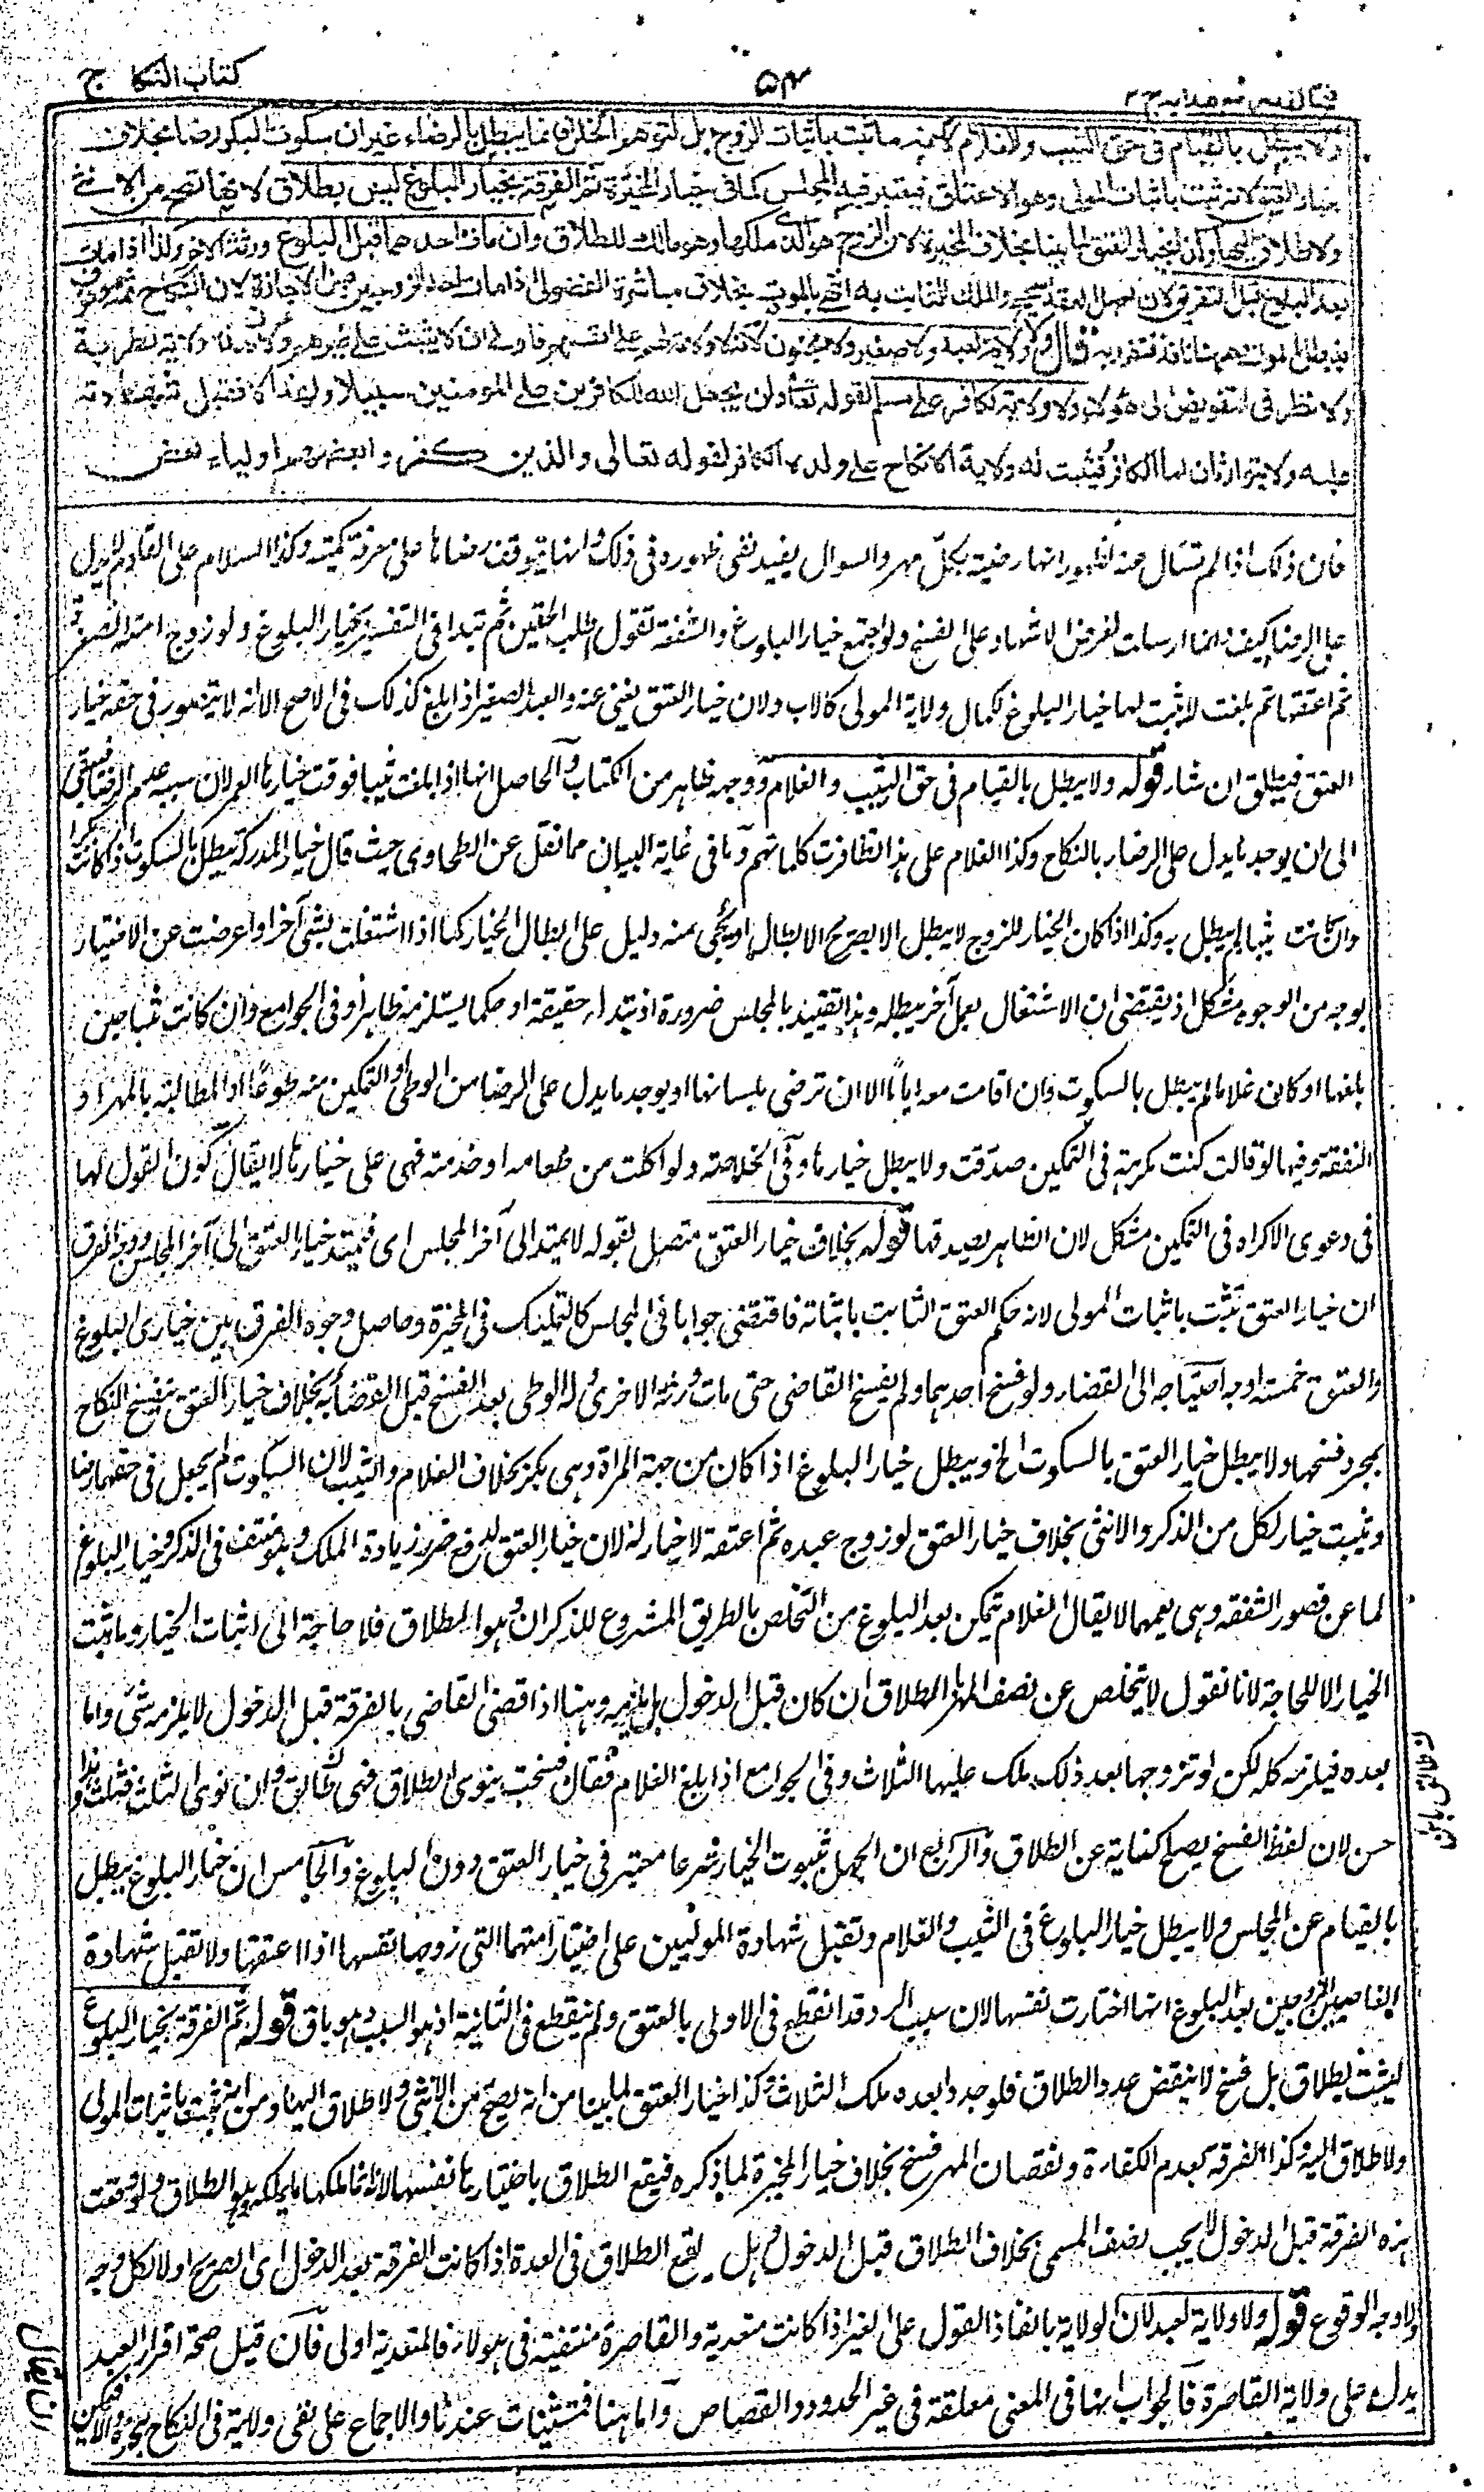 كتاب النكاح
۵۴
ولا يبطل بالقيام في حق الثيب والغلام لانه ما ثبت باثبات الزوج بل لتوهم الخلل فانما يبطل بالرضاء غير ان سكوت البكر رضا بخلاف
خيار العتق لانه ثبت باثبات المولى وهو الاعتاق فيعتبر فيه المجلس كما في خيار المخيرة ثم الفرقة بخيار البلوغ ليس بطلاق لانها تصح من الانثى
ولا طلاق اليها وكذا بخيار العتق لما بينا بخلاف المخيرة لان الزوج هو الذي ملكها وهو مالك للطلاق وان مات احدهما قبل البلوغ ورثه الآخر وكذا اذا مات
بعد البلوغ قبل التفريق لان اصل العقد صحيح والملك الثابت به انتهى بالموت بخلاف مباشرة الفضولي اذا مات احد الزوجين قبل الاجازة لان النكاح ثمه موقوف
فيبطل بالموت وههنا نافذ فتقرر به قال ولا ولاية لعبد ولا صغير ولا مجنون لانه لا ولاية لهم على انفسهم فاولى ان لا يثبت على غيرهم ولان هذه ولاية نظرية
ولا نظر في التفويض الى هؤلاء ولا ولاية لكافر على مسلم لقوله تعالى ولن يجعل الله للكافرين على المؤمنين سبيلا ولهذا لا تقبل شهادته
عليه ولا يتوارثان اما الكافر فيثبت له ولاية الانكاح على ولده الكافر لقوله تعالى والذين كفروا بعضهم اولياء بعض
فان ذلك اذا لم تسأل عنه لظهور انها راضية بكل مهر والسوال يفيد نفي ظهوره في ذلك وانها يتوقف رضاها على معرفة كميته وكذا السلام على القادم لا يدل
على الرضا كيف وانما ارسلت لغرض الاشهاد على الفسخ ولو اجتمع خيار البلوغ والشفعة تقول اطلب الحقين ثم تبدأ في التفسير بخيار البلوغ ولو زوج امته الصغيرة
ثم اعتقها ثم بلغت لا يثبت لها خيار البلوغ لكمال ولاية المولى كالاب ولان خيار العتق يغني عنه والعبد الصغير اذا بلغ كذلك في الاصح الا انه لا يتصور في حقه خيار
العتق فيطلق ان شاء قوله ولا يبطل بالقيام في حق الثيب والغلام ووجهه ظاهر من الكتاب والحاصل انها اذا بلغت ثيبا فوقت خيارها العمر لان سببه عدم الرضا فيبقى
الى ان يوجد ما يدل على الرضاء بالنكاح وكذا الغلام على هذا تظافرت كلماتهم وما في غاية البيان مما نقل عن الطحاوي حيث قال خيار المدركة يبطل بالسكوت اذا كانت بكرا
وان كانت ثيبا لم يبطل به وكذا اذا كان الخيار للزوج لا يبطل الا بصريح الابطال او يجيء منه دليل على ابطال الخيار كما اذا اشتغلت بشيء آخر او اعرضت عن الاختيار
بوجه من الوجوه مشكل اذ يقتضي ان الاشتغال بعمل آخر يبطله وهذا تقييد بالمجلس ضرورة ان تبدله حقيقة او حكما يستلزمه ظاهرا وفي الجوامع وان كانت ثيبا حين
بلغها او كان غلاما لم يبطل بالسكوت وان اقامت معه اياما الا ان ترضى بلسانها او يوجد ما يدل على الرضا من الوطي او التمكين منه طوعا او المطالبة بالمهر او
النفقة وفيها لو قالت كنت مكرهة في التمكين صدقت ولا يبطل خيارها وفي الخلاصة ولو اكلت من طعامه او خدمته فهي على خيارها لا يقال كون القول لها
في دعوى الاكراه في التمكين مشكل لان الظاهر يصدقها قوله بخلاف خيار العتق متصل بقوله لا يمتد الى آخر المجلس اي فيمتد خيار العتق الى آخر المجلس ووجه الفرق
ان خيار العتق يثبت باثبات المولى لانه حكم العتق الثابت باثباته فاقتضى جوابا في المجلس كالتمليك في المخيرة وحاصل وجوه الفرق بين خياري البلوغ
والعتق خمسة اوجه احتياجه الى القضاء ولو فسخ احدهما ولم يفسخ القاضي حتى مات ورثه الآخر وله الوطي بعد الفسخ قبل القضاء به بخلاف خيار العتق يفسخ النكاح
بمجرد فسخها ولا يبطل خيار العتق بالسكوت الخ ويبطل خيار البلوغ اذا كان من جهة المرأة وهي بكر بخلاف الغلام والثيب لان السكوت لم يجعل في حقهما رضا
ويثبت خيار لكل من الذكر والانثى بخلاف خيار العتق لو زوج عبده ثم اعتقه لا خيار له لان خيار العتق لدفع ضرر زيادة الملك وهو منتف في الذكر وخيار البلوغ
لما عن قصور الشفقة وهي يعمهما لا يقال الغلام يتمكن بعد البلوغ من التخلص بالطريق المشروع للذكران وهو الطلاق فلا حاجة الى اثبات الخيار وما ثبت
الخيار الا للحاجة لانا نقول لا يتخلص عن نصف المهر بالطلاق ان كان قبل الدخول بل يلزمه وههنا اذا قضى القاضي بالفرقة قبل الدخول لا يلزمه شيء واما
بعده فيلزمه كله لكن لو تزوجها بعد ذلك ملك عليها الثلاث وفي الجوامع اذا بلغ الغلام فقال فسخت ينوي الطلاق فهي طالق وان نوى الثلث فثلث وهذا
حسن لان لفظ الفسخ يصلح كناية عن الطلاق والرابع ان الجهل بثبوت الخيار شرعا معتبر في خيار العتق دون البلوغ والخامس ان خيار العتق يبطل
بالقيام عن المجلس ولا يبطل خيار البلوغ في الثيب والغلام وتقبل شهادة الموليين على اختيار امتهما التي زوجاها نفسها اذا اعتقها ولا تقبل شهادة
العاصبين المزوجين بعد البلوغ انها اختارت نفسها لان سبب الرد قد انقطع في الاولى بالعتق ولم ينقطع في الثانية اذ هو النسب وهو باق قوله ثم الفرقة بخيار البلوغ
ليست بطلاق بل فسخ لا ينقص عدد الطلاق فلو جدد ابعده ملك الثلاث وكذا خيار العتق لما بينا من انه يصح من الانثى ولا طلاق اليها ومن انه يثبت باثبات المولى
ولا طلاق اليه وكذا الفرقة بعدم الكفاءة ونقصان المهر فسخ بخلاف خيار المخيرة لما ذكره فيقع الطلاق باختيارها نفسها لانه انما ملكها ما يملكه وهو الطلاق ولو وقعت
هذه الفرقة قبل الدخول لا يجب نصف المسمى بخلاف الطلاق قبل الدخول وهل يقع الطلاق في العدة اذا كانت الفرقة بعد الدخول اي الصريح او لا لكل وجه
والاوجه الوقوع قوله ولا ولاية لعبد لان الولاية بانفاذ القول على الغير اذا كانت متعدية والقاصرة منتفية في هؤلاء فالمتعدية اولى فان قيل صحة اقرار العبد
يدل على ولاية القاصرة فالجواب انها في المعنى معلقة في غير الحدود والقصاص واما هما فمستثنيات عندنا والاجماع على نفي ولاية في النكاح
ان يقال